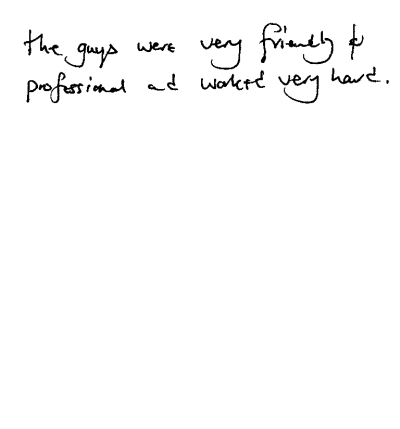 the guys were very friendly &
professional and worked very hard.